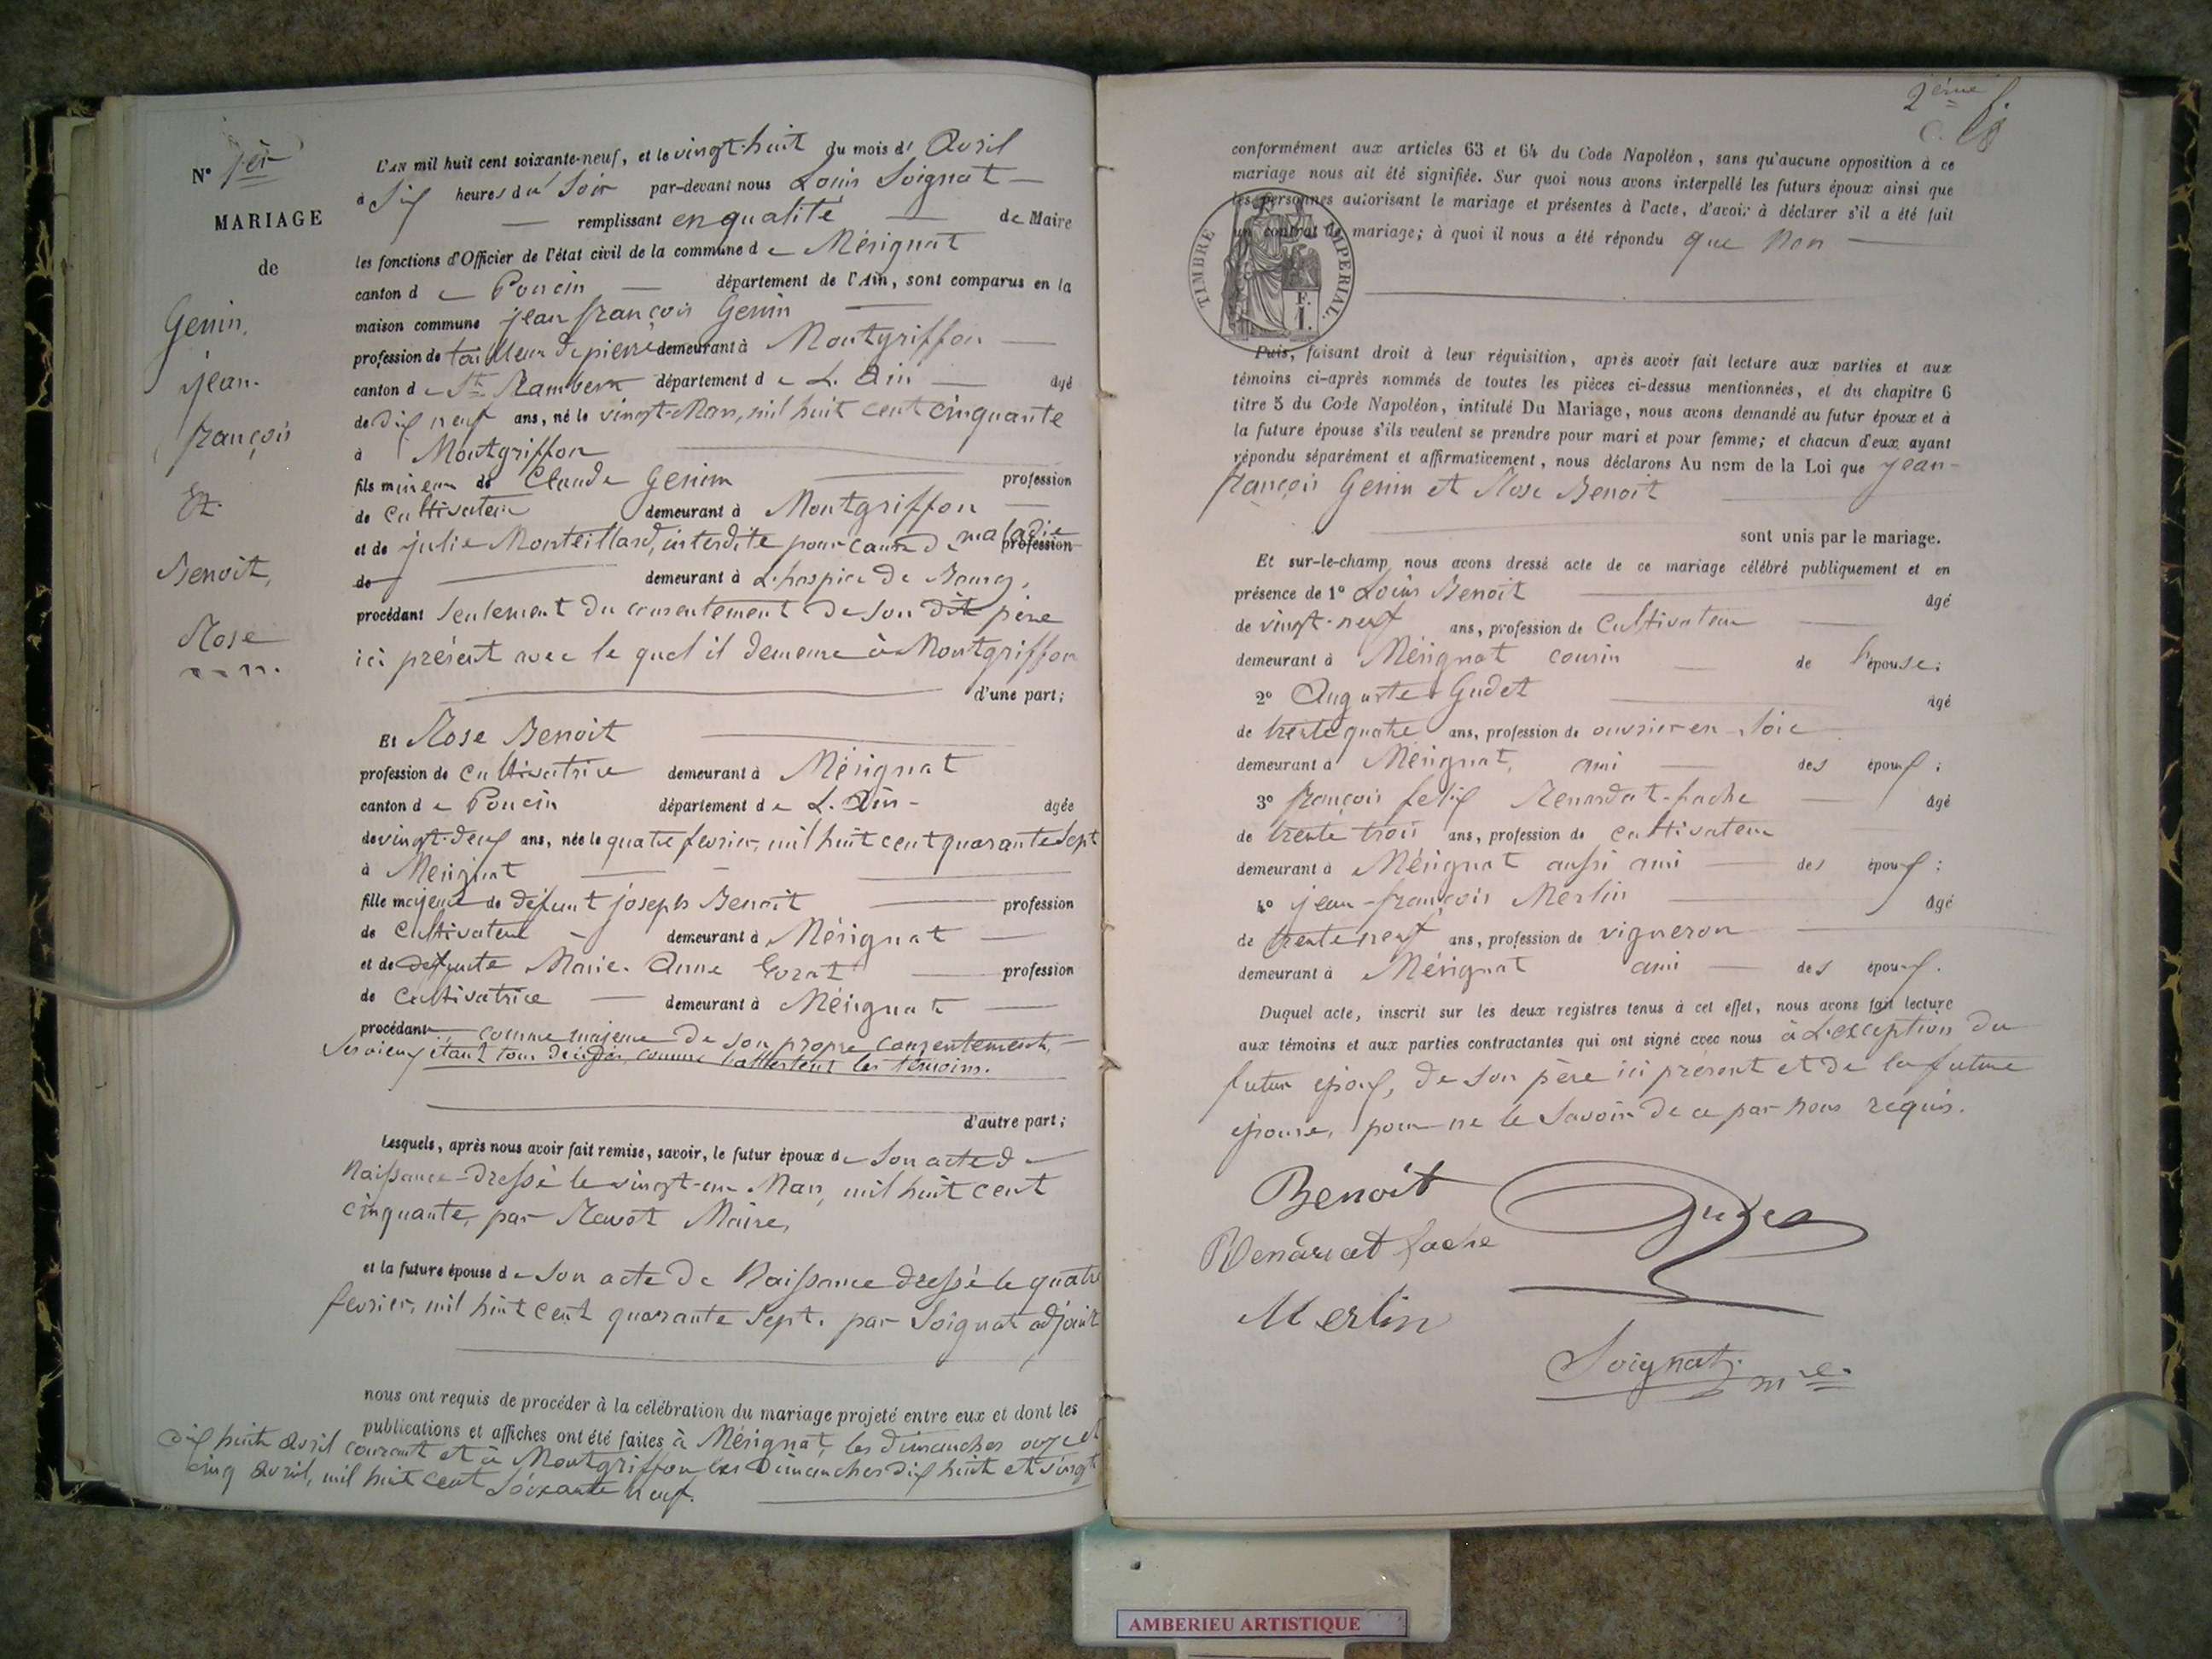 N° 1er
MARIAGE
de
Genin,
jean-
françois
Et
Benoit,
Rose
L'AN mil huit cent soixante-neuf, et le vingt-huit du mois d' Avril
à Six heures du Soir par-devant nous Louis Soignat
remplissant en qualité de Maire
les fonctions d'Officier de l'état civil de la commune de Mérignat
canton de Poncin département de l'Ain, sont comparus en la
maison commune jean françois Genin
profession de tailleur de pierre demeurant à Montgriffon
canton de St Rambert département de L'Ain âgé
de dix neuf ans, né le vingt Mars, mil huit cent cinquante
à Montgriffon
fils mineur de Claude Genin profession
de Cultivateur demeurant à Montgriffon
et de julie Monteillard, interdite pour cause de maladie profession
de demeurant à L'hospice de Bourg,
procédant Seulement du consentement de son dit père
ici présent avec le quel il demeure à Montgriffon
d'une part;
Et Rose Benoit
profession de Cultivatrice demeurant à Mérignat
canton de Poncin département de L'Ain âgée
de vingt-deux ans, née le quatre février, mil huit cent quarante Sept
à Mérignat
fille majeure de défunt joseph Benoit profession
de Cultivateur demeurant à Mérignat
et de défunte Marie-Anne profession
de Cultivatrice demeurant à Mérignat
procédant comme majeure de son propre consentement,
Ses aieux étant tous décédés, comme l'attestent les témoins.
d'autre part;
Lesquels, après nous avoir fait remise, savoir, le futur époux de Son acte de
Naissance dressé le vingt-un Mars, mil huit cent
cinquante, par Ravot Maire,
et la future épouse de Son acte de Naissance dressé le quatre
février, mil huit cent quarante Sept. par Soignat adjoint
nous ont requis de procéder à la célébration du mariage projeté entre eux et dont les
publications et affiches ont été faites à Mérignat, les dimanches onze et
dix huit Avril courant et à Montgriffon les Dimanches dix huit et vingt
cinq Avril, mil huit cent Soixante neuf.
2ème f.
conformément aux articles 63 et 64 du Code Napoléon, sans qu'aucune opposition à ce
mariage nous ait été signifiée. Sur quoi nous avons interpellé les futurs époux ainsi que
les personnes autorisant le mariage et présentes à l'acte, d'avoir à déclarer s'il a été fait
un contrat de mariage; à quoi il nous a été répondu que Non
TIMBRE IMPERIAL.
F.
1.
Puis, faisant droit à leur réquisition, après avoir fait lecture aux parties et aux
témoins ci-après nommés de toutes les pièces ci-dessus mentionnées, et du chapitre 6
titre 5 du Code Napoléon, intitulé Du Mariage, nous avons demandé au futur époux et à
la future épouse s'ils veulent se prendre pour mari et pour femme; et chacun d'eux ayant
répondu séparément et affirmativement, nous déclarons Au nom de la Loi que jean-
françois Genin et Rose Benoit
sont unis par le mariage.
Et sur-le-champ nous avons dressé acte de ce mariage célébré publiquement et en
présence de 1° Louis Benoit âgé
de vingt-neuf ans, profession de Cultivateur
demeurant à Mérignat cousin de l'épouse;
2° Auguste Gudet âgé
de trente quatre ans, profession de ouvrier en Soie
demeurant à Mérignat, ami des époux;
3° françois felix Renardat-fache âgé
de trente trois ans, profession de cultivateur
demeurant à Mérignat aussi ami des époux;
4° jean-françois Merlin âgé
de trente neuf ans, profession de vigneron
demeurant à Mérignat ami des époux.
Duquel acte, inscrit sur les deux registres tenus à cet effet, nous avons fait lecture
aux témoins et aux parties contractantes qui ont signé avec nous à L'exception du
futur époux, de son père ici présent et de la future
épouse, pour ne le Savoir de ce par nous requis.
Benoit
Renardat fache
Merlin
Soignat, mre
AMBERIEU ARTISTIQUE